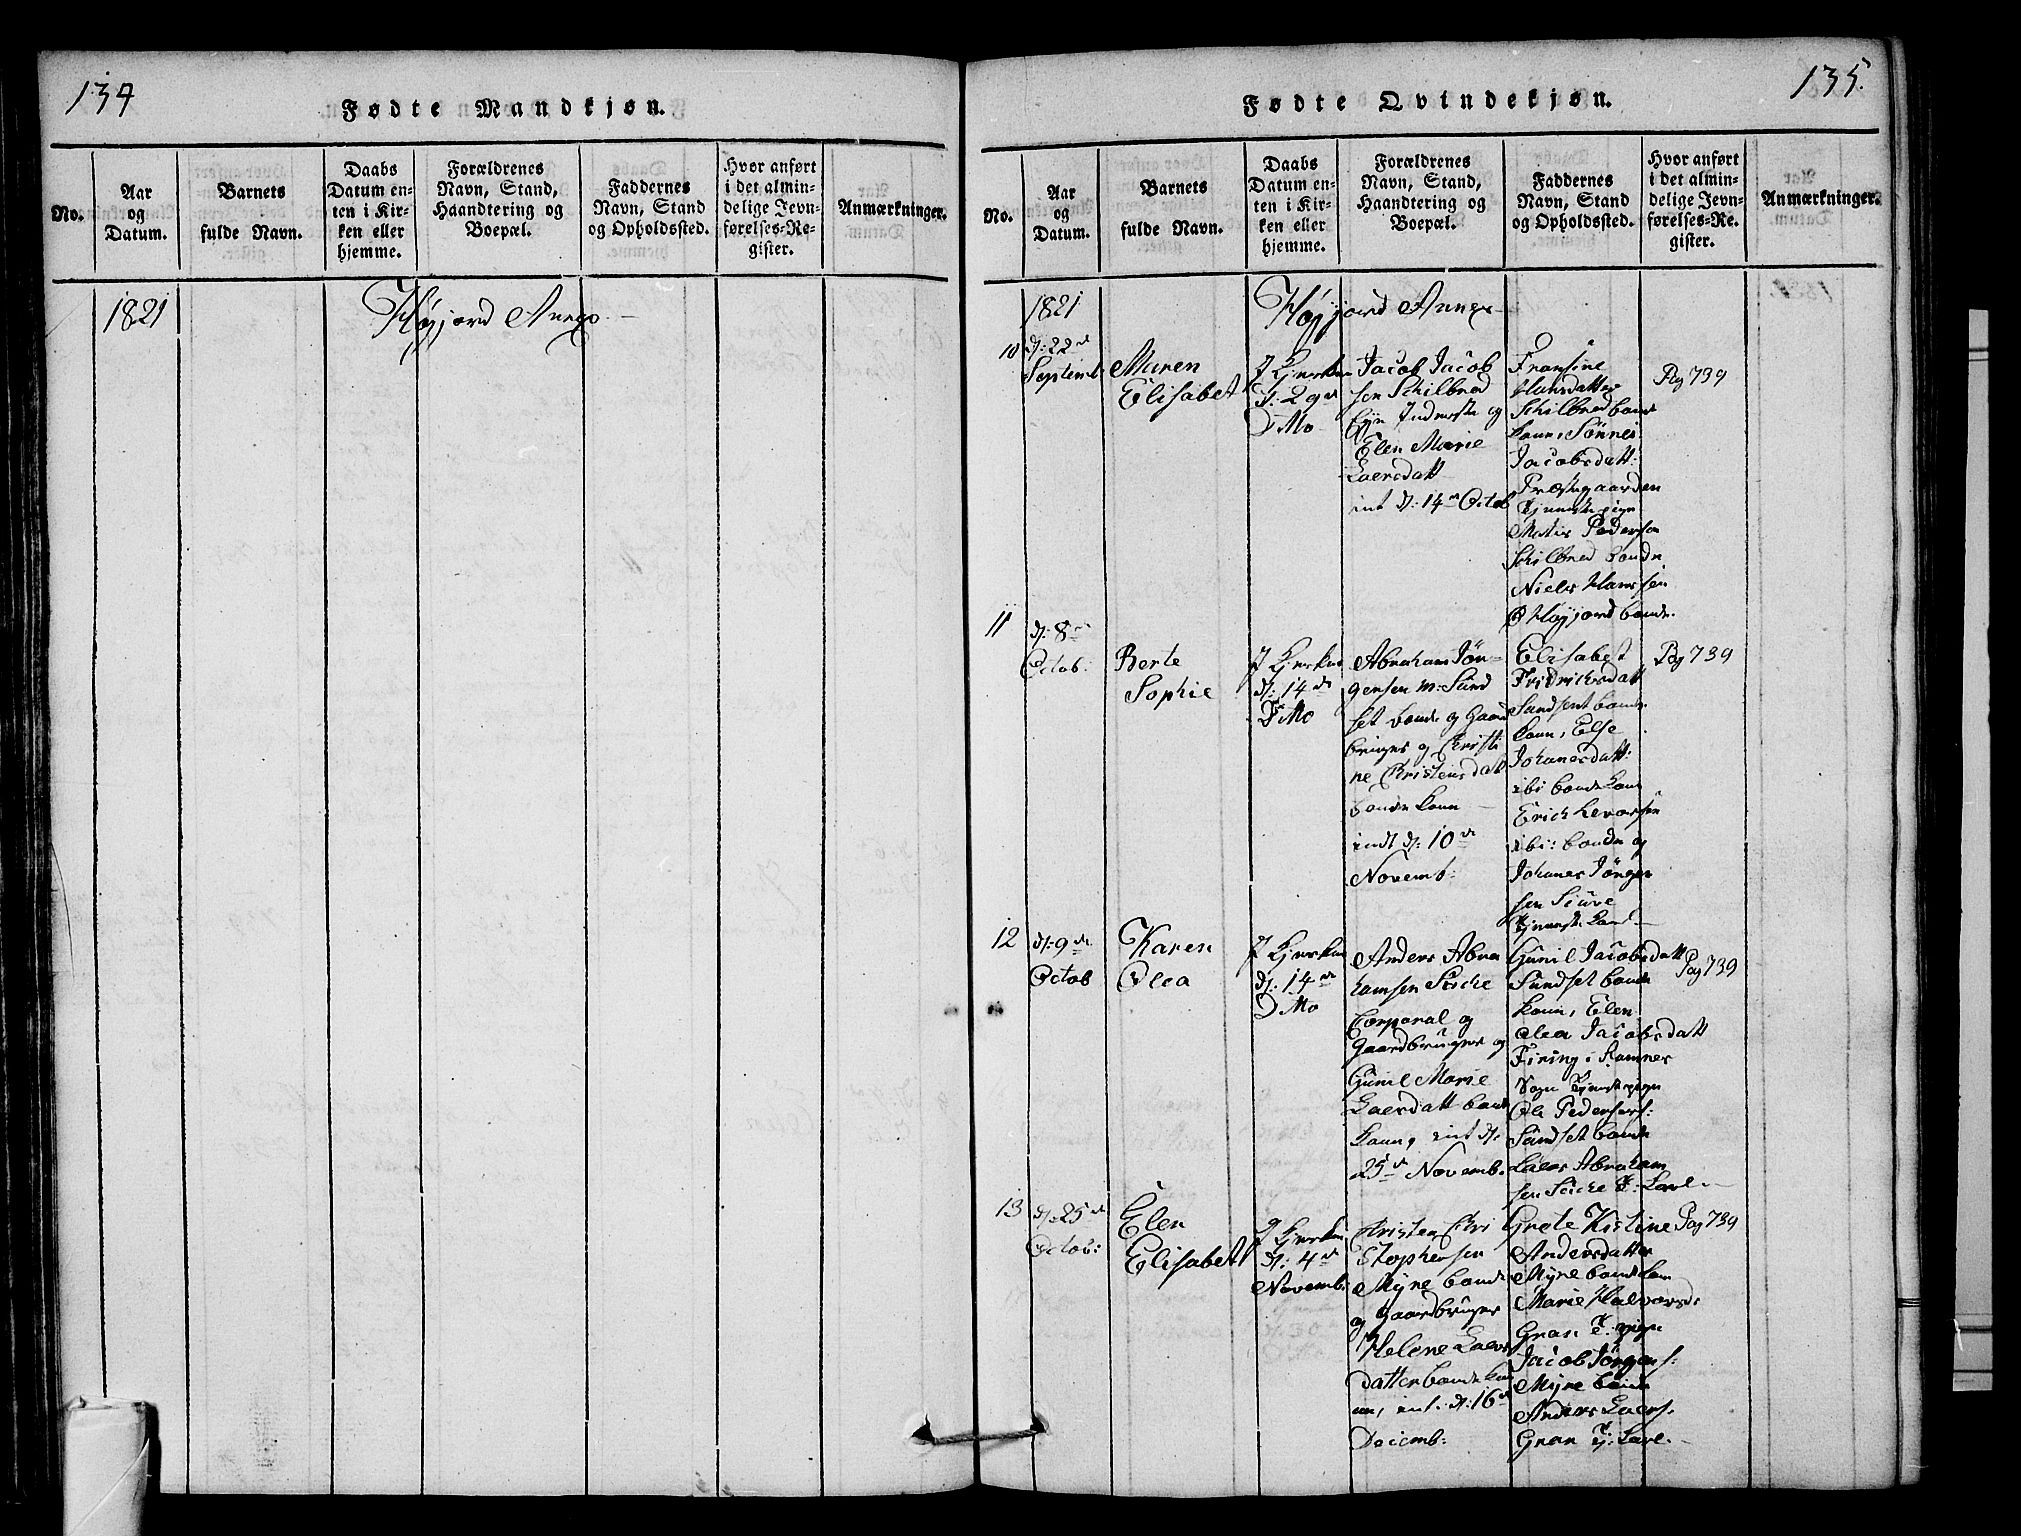 134
Fødte Mandkjøn.
No.
Aar
og
Datum.
Barnets
fulde Navn.
Daabs
Datum en-
ten i Kir-
ken eller
hjemme.
Forældrenes
Navn, Stand,
Haandtering og
Boepæl.
Faddernes
Navn, Stand
og Opholdssted.
Hvor anført
i det almin-
delige Jevn-
førelses-Re-
gister.
Anmærkninger.
1821
Høyjord Annex
135.
Fødte Qvindekjøn.
No.
Aar
og
Datum.
Barnets
fulde Navn.
Daabs
Datum en-
ten i Kir-
ken eller
hjemme.
Forældrenes
Navn, Stand,
Haandtering og
Boepæl.
Faddernes
Navn, Stand
og Opholdssted.
Hvor anført
i det almin-
delige Jevn-
førelses-Re-
gister.
Anmærkninger.
1821
Høyjord Annex
10
d: 22de
Septemb
Maren
Elisabet
I Kjerken
d: 29de
D Mo
Jacob Jacob
sen Schilbred
Inderste og
Elen Marie
Laersdatt
int d: 14de Octob
Fransine
Hansdatter
Schilbred bonde
kone, Sønnev
Jacobsdatt:
Præstegaarden
tjeneste pige
Matis Pedersen
Schilbred bonde
Niels Hanssen
Høyjord bonde.
Pag 739
11
d: 8de
Octob:
Berte
Sophie
I Kjerken
d: 14de
D Mo
Abraham Jön-
gensen m: Sund
set bonde og Gaard
bruger og Christi
ne Christensdatt
bonde kone
indt d: 10de
Novemb:
Elisabet
Fridrichsdatt
Sundset bonde
kone, Else
Johanesdatt:
ibi bonde kone
Erich Levorsen
ibi: bonde og
Johanes Jönger
sen Stuve
tjeneste karl
Pag 739
12
d: 9de
Octob
Karen
Olea
I Kjerken
d: 14de
D Mo
Anders Abra
hamsen
Corporal og
Gaardbruger og
Gunil Marie
Laersdatt bonde
kone, int d:
25de Novemb:
Gunil Jacobsdatt
Sundset bonde
kone, Elen
Olea Jacobsdatt
Firing i Ramnes
Sogn tjeneste pige
Ole Pedersers:
Sundset bonde
Laers Abraham
sen T: karl
Pag 739
13
d: 25de
Octob:
Elen
Elisabet
I Kjerken
d: 4de
Novemb:
Kristen Chri
Stophersen
Myre bonde
og Gaardbruger
Helene Laers
datter bonde kon
int: d: 16de
Decemb:
Grete Kistine
Andersdatter
Myre bonde kone
Marie Halvorsd:
Gran T: pige
Jacob Jörgens:
Myre bonde
Anders Laers:
Gran Tj: karl
Pag 739